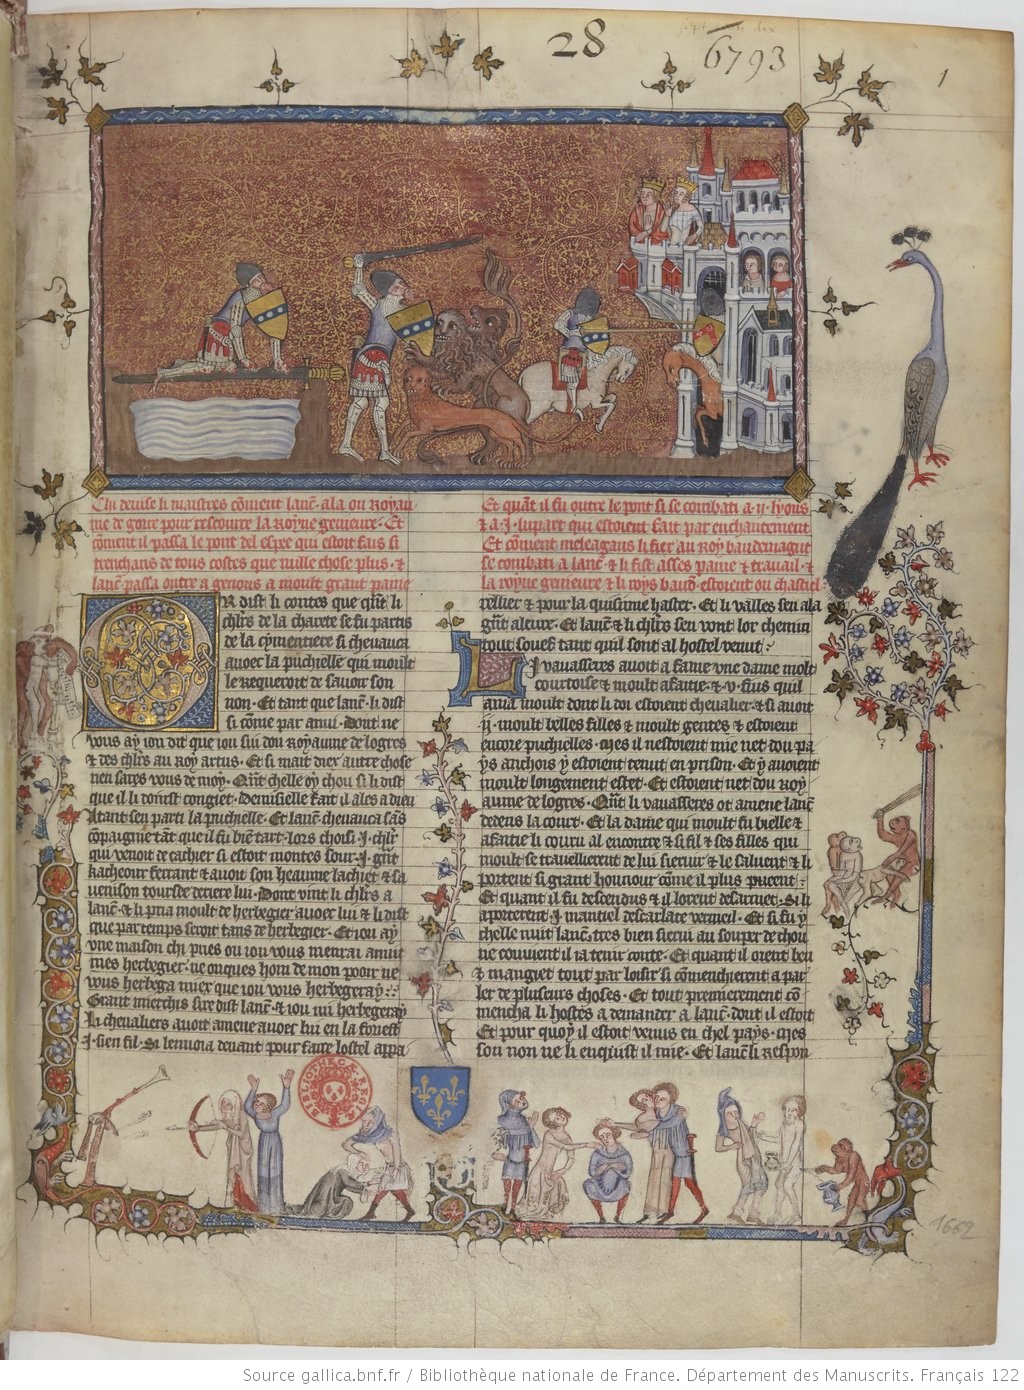 28
6793
1
Chi deuise li maistres cõment lanc̃ · ala ou Royau
me de goire pour rescourre la Royne genieure · Et
cõment il passa le pont del espee qui estoit fais si
trenchans de tous costes que nulle chose plus · &
lanc̃ passa outre a genous a moult grant paine
Et quãt il fu outre le pont si se combati a · ij · lyons
& a · j · lupart qui estoient fait par enchantement
Et cõment meleagans li fiex au Roy baudemagut
se combati a lanc̃ · & li fist asses paine & trauail · &
la royne genieure & li roys baud̃ · estoient ou chastiel
OR dist li contes que qñt li
chl̃rs de la charete se fu partis
de la cymentiere si cheuauca
auoec la puchielle qui moult
le requeroit de sauoir son
non · Et tant que lanc̃ · li dist
si cõme par anui · Dont ne
vous ay iou dit que iou sui dou Royaume de logres
& des chl̃rs au Roy artus · Et si mait diex autre chose
nen sares vous de moy · Qñt chelle oy chou si li dist
que il li donist congiet · Demisielle fait il ales a dieu
Atant sen parti la puchielle · Et lanc̃ cheuauca sãs
cõpaignie tãt que il fu biẽ tart · lors choisi · j · chl̃r
qui venoit de cachier si estoit montes sour · j · grñt
kacheour ferrant & auoit son heaume lachiet & sa
uenison toursee deriere lui · Dont vint li chl̃rs a
lanc̃ · & li pria moult de herbegier auoec lui & li dist
que par temps seroit tans de herbegier · Et iou ay
vne maison chi pries ou iou vous menrai anuit
mes herbegier · ne onques hom de mon pooir ne
vous herbega miex que iou vous herbegeray ·
Grant merchis sire dist lanc̃ · & iou mi herbegeray
Li cheualiers auoit amene auoec lui en la forest
· j · sien fil · Si lenuoia deuant pour faire lostel appa
rellier & pour la quisinne haster · Et li valles sen ala
grñt aleure · Et lanc̃ & li chl̃rs sen vont lor chemin
tout souef tant quil sont al hostel venut ·
Li vauasseres auoit a fame vne dame molt
courtoise & moult afaitie · & · v · fius quil
ama moult dont li doi estoient cheualier · & si auoit
ij · moult belles filles & moult gentes & estoient
encore puchielles · mes il nestoient mie net dou pa
ys anchois y estoient tenut en prison · Et y auoient
moult longement estet · Et estoient net dou Roy
aume de logres · Qñt li vauasseres ot amene lanc̃
dedens la court · Et la dame qui moult fu bielle &
afaitie li couru al encontre & si fil & ses filles qui
moult se trauellierent de lui sieruir & le saluent & li
portent si grant hounour cõme il plus pueent ·
Et quant il fu descendus & il lorent desarmet · si li
aporterent · j · mantiel descarlate vermeil · Et si fu y
chelle nuit lanc̃ · tres bien sierui au souper de chou
ne couuient il ia tenir conte · Et quant il orent beu
& mangiet tout par loisir si cõmenchierent a par
ler de pluseurs choses · Et tout premierement cõ
mencha li hostes a demander a lanc̃ · dont il estoit
Et pour quoy il estoit venus en chel pays · mes
son non ne li enquist il mie · Et lanc̃ li respon
BIBLIOTHECÆ REGIÆ
1662
Source gallica.bnf.fr / Bibliothèque nationale de France. Département des Manuscrits. Français 122